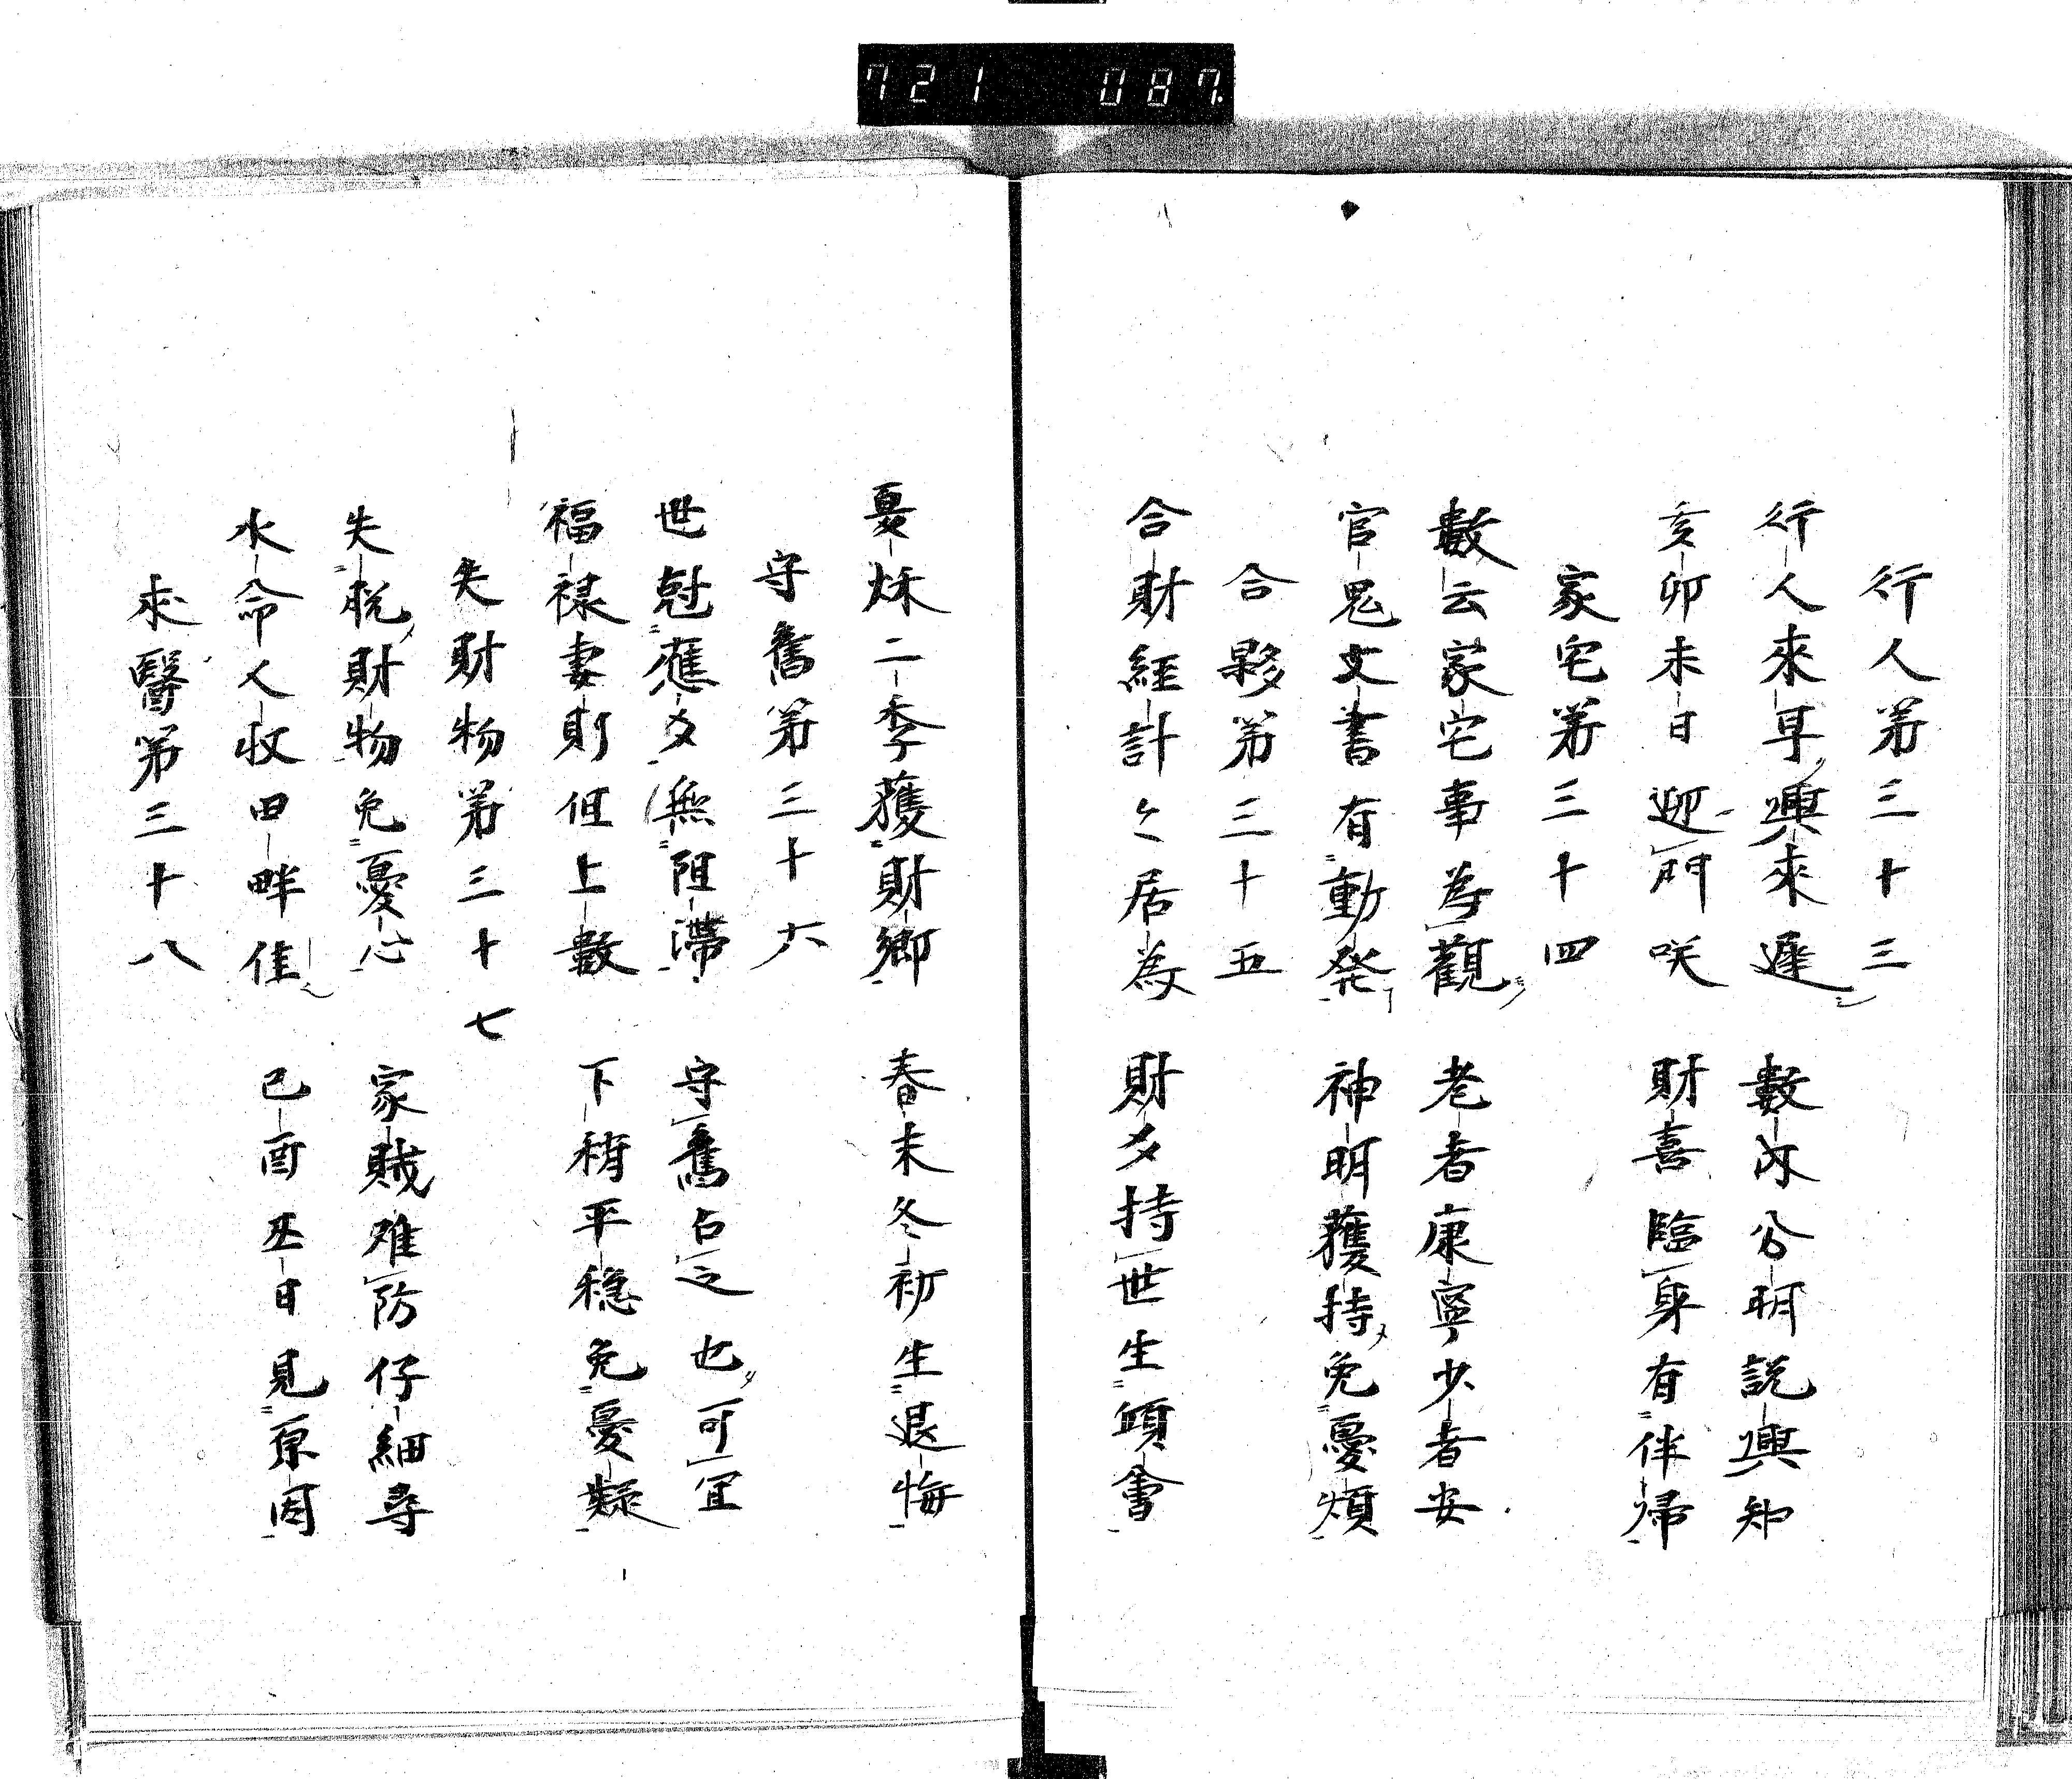 721 087.
行人第三十三
行人來早與來遲 數內分明說與知
亥卯未日迎門咲 財喜臨身有伴歸
家宅第三十四
數云家宅事為觀 老者康寧少者安
官鬼文書有動発 神明獲持免憂煩
合夥第三十五
合財經計々居為 財爻持世生頭會
夏秌二季獲財鄉 春末冬初生退悔
守舊第三十六
世尅應爻無阻滯 守舊占之也可宜
福祿妻財但上數 下稍平穩免憂疑
失財物第三十七
失脫財物免憂心 家賊难防仔細尋
水命人收田畔佳 巳酉丑日見原因
求醫第三十八